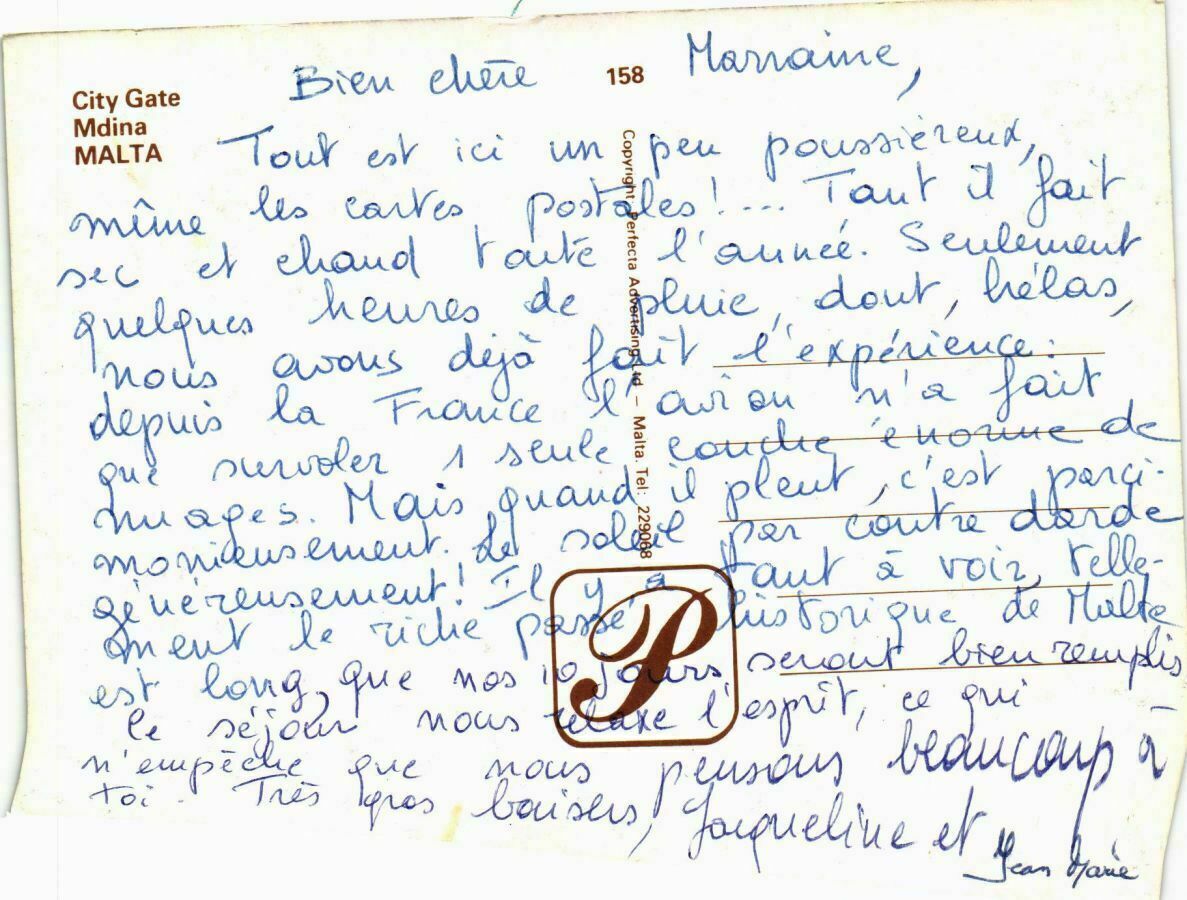 City Gate
Mdina
MALTA
158
Bien chère Marraine,
Tout est ici un peu poussiéreux,
même les cartes postales!... Tant il fait
sec et chaud toute l'année. Seulement
quelques heures de pluie, dont, hélas,
nous avons déjà fait l'expérience:
depuis la France l'avion n'a fait
que survoler 1 seule couche énorme de
nuages. Mais quand il pleut, c'est parci-
monieusement. Le soleil par contre darde
généreusement! Il y a tant à voir, telle-
ment le riche passé historique de Malte
est long, que nos 10 jours seront bien remplis
le séjour nous relaxe l'esprit, ce qui
n'empêche que nous pensons beaucoup à
toi. Très gros baisers, Jacqueline et
Jean Marie
Copyright: Perfecta Advertising Ltd – Malta. Tel: 229068
P